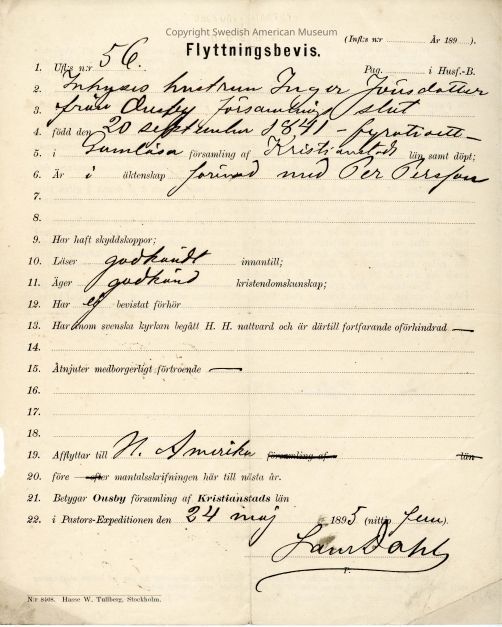 Copyright Swedish American Museum
(Infl:s n:r ........ År 189 ).
Flyttningsbevis.
1. Utfl:s n:r 56. Pag. ........ i Husf.-B.
2. Inhyses hustrun Inger Jönsdotter
3. från Ousby församlings slut
4. född den 20 september 1841 – fyrtioett –
5. i församling af Kristianstads län samt döpt;
6. Är i äktenskap förenad med Per Persson
7.
8.
9. Har haft skyddskoppor;
10. Läser godkändt innantill;
11. Äger godkänd kristendomskunskap;
12. Har ej bevistat förhör
13. Har inom svenska kyrkan begått H. H. nattvard och är därtill fortfarande oförhindrad —
14.
15. Åtnjuter medborgerligt förtroende —
16.
17.
18.
19. Afflyttar till N. Amerika församling af län
20. före efter mantalsskrifningen här till nästa år.
21. Betygar Ousby församling af Kristianstads län
22. i Pastors-Expeditionen den 24 maj 1895 (nittio fem).
Dahl
N:r 8408. Hasse W. Tullberg, Stockholm.